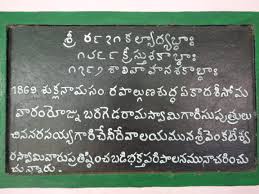 శ్రీ ౪౯౭౦కల్యాద్యబ్దాః
౧౮౬౯ క్రీస్తుశకాబ్దాః
౧౭౯౧ శాలివాహనశకాబ్దాః
1869 శుక్లనామసం రపాల్గుణశుద్ధఏకాదశీసోమ
వారంరోజ్ను బరగెడరామస్వామిగారిసుపుత్రులు
చిననరసయ్యగారిచేనీదేవాలయమునశ్రీవెంకటేశ్వ
రస్వామివారుప్రతిష్ఠించబడిభక్తసరిపాలనమునాచరించు
చున్నారు.